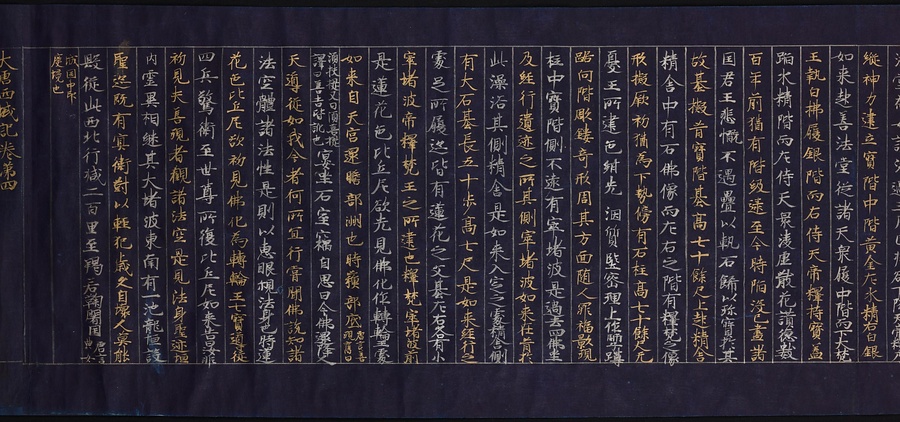 縱神力建立寶階中階黃金左水精右白銀
如來起善法堂從諸天衆履中階而下大梵
王執白拂履銀階而右侍天帝釋持寶蓋
蹈水精階而左侍天衆凌虛散花讚德數
百年前猶有階級逮至今時陷沒已盡諸
国君王悲慨不遇疊以軌石餝以珍寶於其
故基擬昔寶階其高七十餘尺上起精舍
精舍中有石佛像而左右之階有釋梵之像
形擬厥初猶為下勢傍有石柱高七十餘尺无
憂王所建色紺光潤質堅密理上作師子蹲
踞向階彫鏤奇形周其方面隨人罪福影現
柱中寶階側不遠有窣堵波是過去四佛坐
及經行遺迹之所其側窣堵波如來在昔於
此澡浴其側精舍是如來入定之處精舍側
有大石基長五十步高七尺是如來經行之
處足所履迹皆有蓮花之文基左右各有小
窣堵波帝釋梵王之所建也釋梵窣堵波前
是蓮花色比丘尼欲先見佛化作轉輪王處
如來自天宮還贍部洲也時蘇部底唐言善
現舊曰
須扶提或曰須菩提
譯曰善吉皆訛也宴坐石室竊自思曰今佛還降
天導從如我今者何所冝行甞聞佛說知諸
法空體諸法性是則以恵眼觀法身也時蓮
花色比丘尼欲初見佛化為轉輪王七寶導從
四兵警衛至世尊所復比丘尼如來告曰汝非
初見夫善現者觀諸法空是見法身聖迹垣
內靈異相繼其大堵波東南有一池龍恒護
聖迹既有冥衛對以輕犯歲久自壞人莫能
毀從此西北行減二百里至羯若鞠闍国唐言
曲女
城国中印
度境也
大唐西域記卷第四